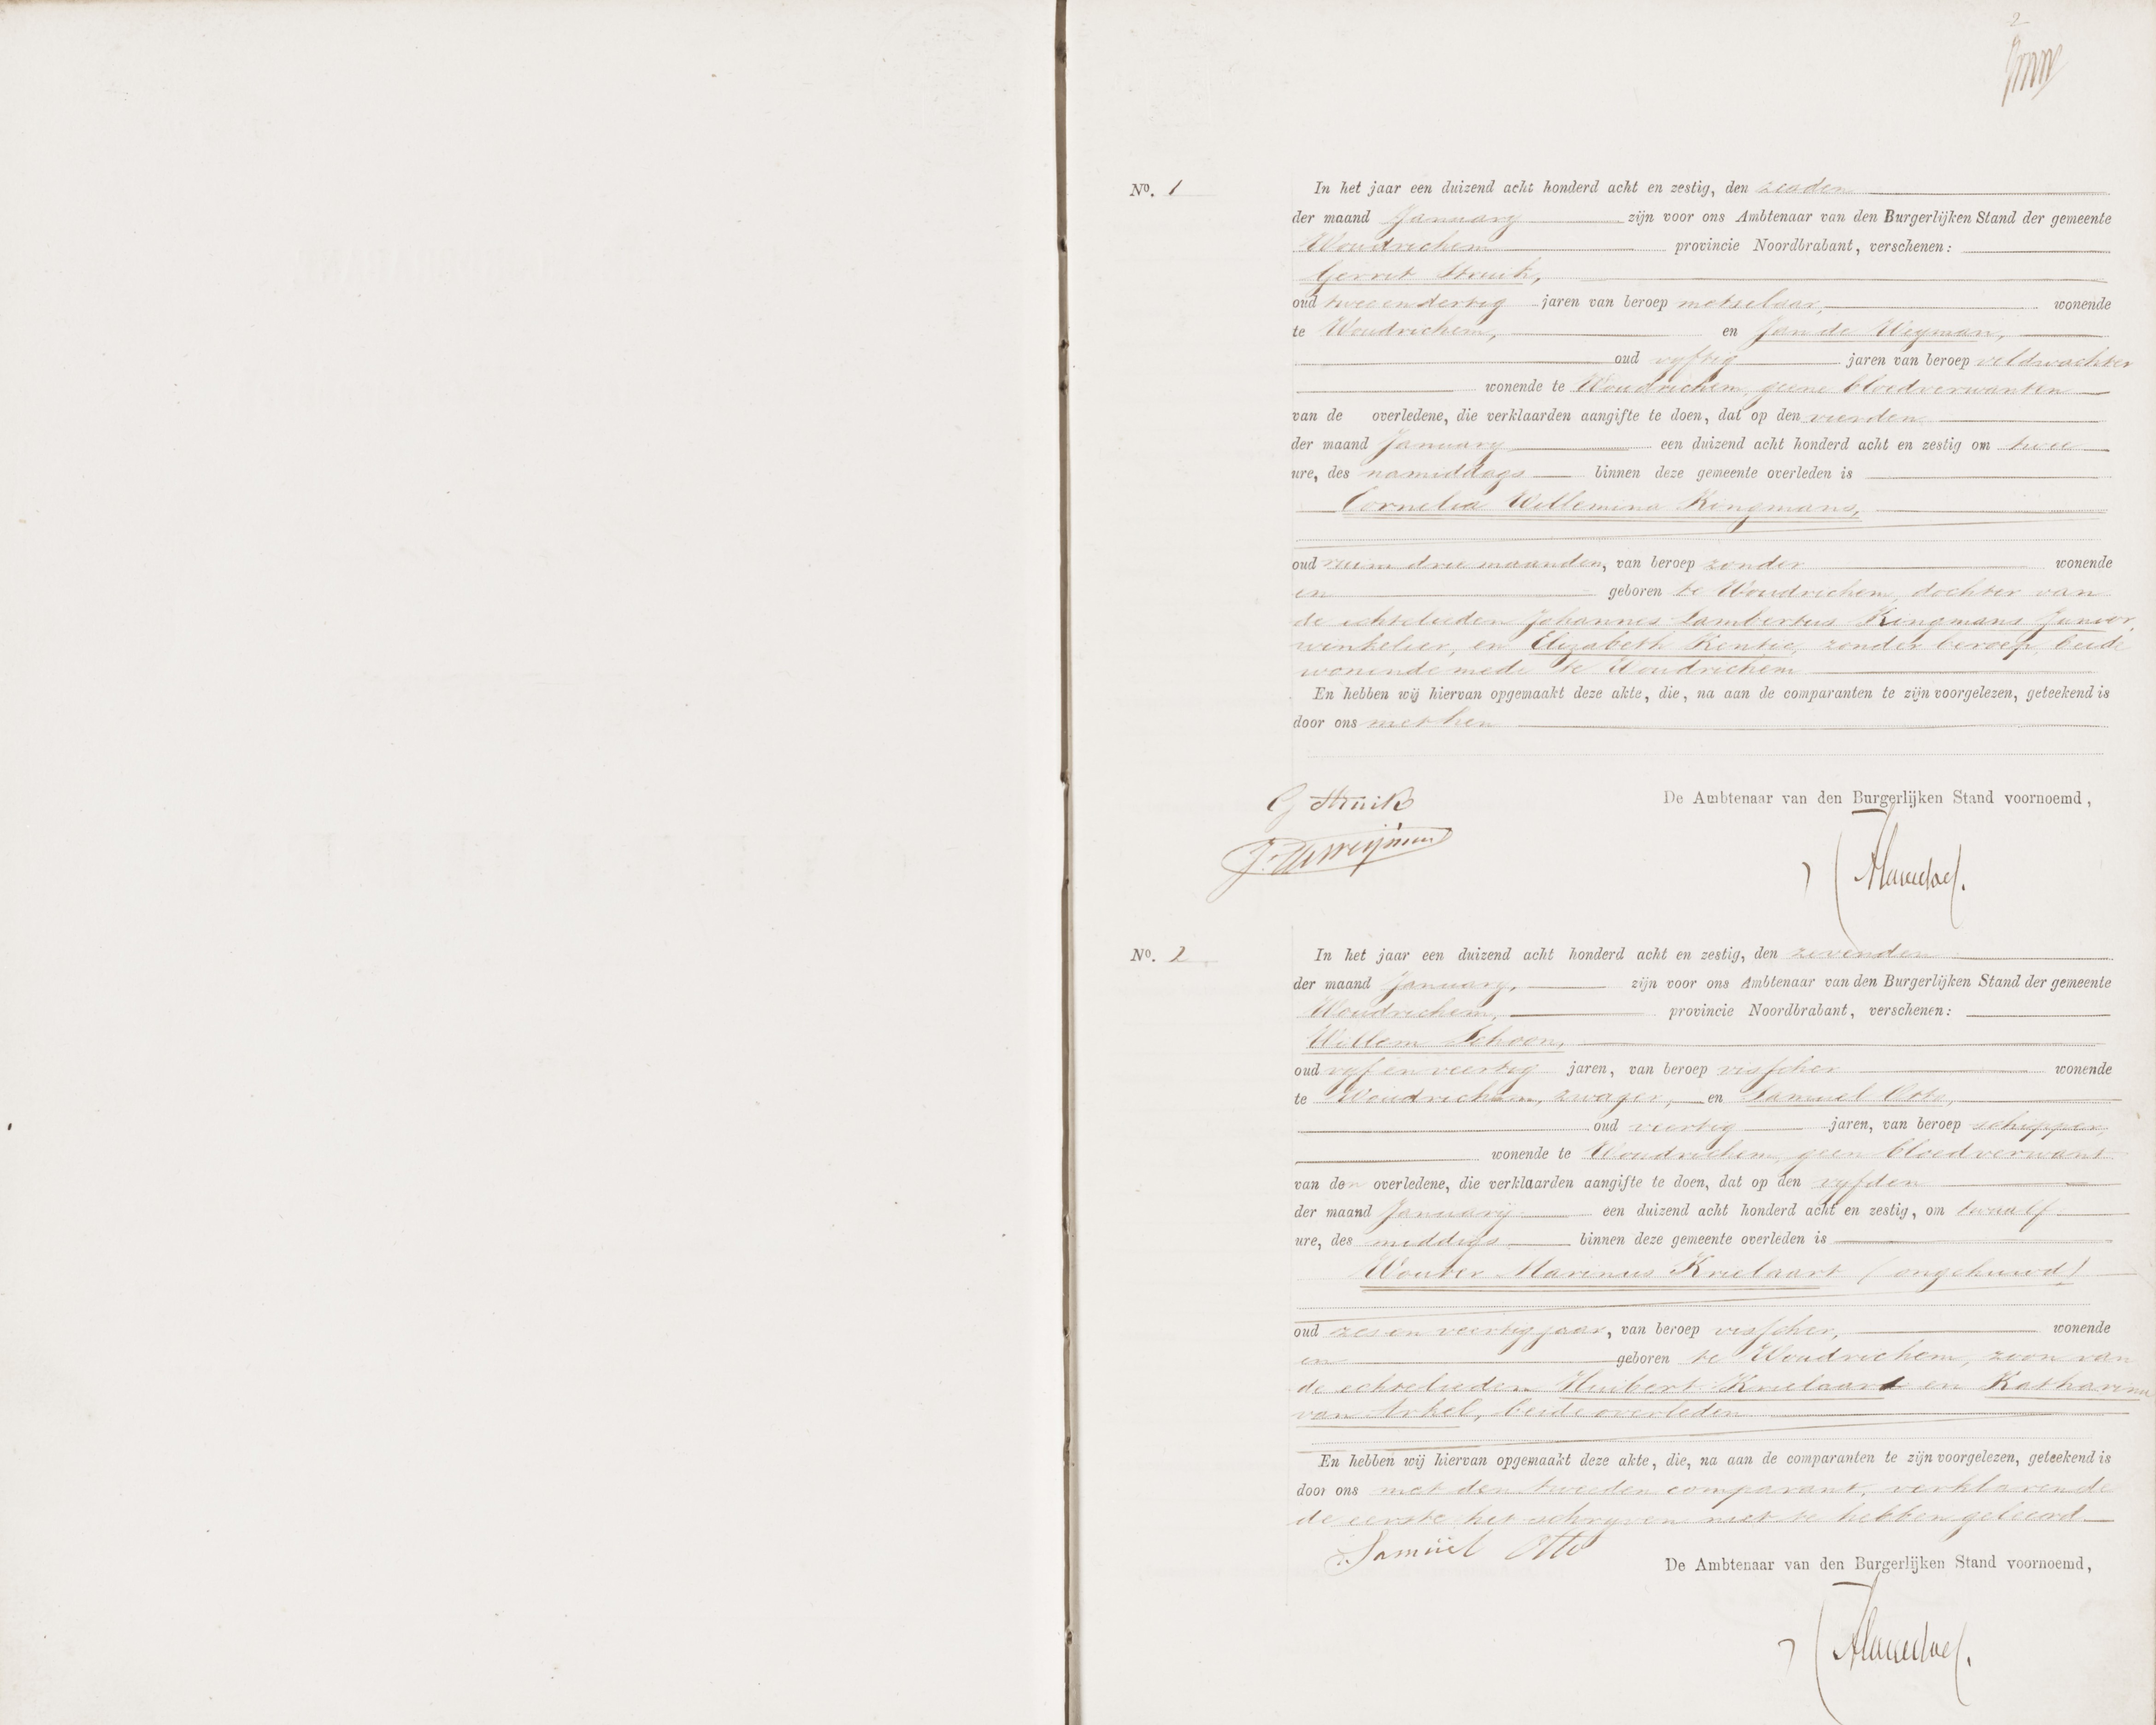 2
No. 1
In het jaar een duizend acht honderd acht en zestig, den zesden
der maand January zijn voor ons Ambtenaar van den Burgerlijken Stand der gemeente
Woudrichem provincie Noordbrabant, verschenen:
Gerrit Struik,
oud twee en dertig jaren van beroep metselaar, wonende
te Woudrichem, en Jan de Weyman,
oud vyftig jaren van beroep veldwachter
wonende te Woudrichem, geene bloedverwanten
van de overledene, die verklaarden aangifte te doen, dat op den vierden
der maand January een duizend acht honderd acht en zestig om twee
ure, des namiddags binnen deze gemeente overleden is
Cornelia Willemina Kingmans,
oud ruim drie maanden, van beroep zonder wonende
en geboren te Woudrichem, dochter van
de echtelieden Johannes Lambertus Kingmans Junior,
winkelier, en Elizabeth Kentie, zonder beroep, beide
wonende mede te Woudrichem
En hebben wij hiervan opgemaakt deze akte, die, na aan de comparanten te zijn voorgelezen, geteekend is
door ons met hen
G Struik
De Ambtenaar van den Burgerlijken Stand voornoemd,
J. de Weijman
No. 2
In het jaar een duizend acht honderd acht en zestig, den zevenden
der maand January, zijn voor ons Ambtenaar van den Burgerlijken Stand der gemeente
Woudrichem, provincie Noordbrabant, verschenen:
Willem Schoon,
oud vyf en veertig jaren, van beroep visscher wonende
te Woudrichem, zwager, en Samuel Otto,
oud veertig jaren, van beroep schipper,
wonende te Woudrichem, geen bloedverwant
van den overledene, die verklaarden aangifte te doen, dat op den vyfden
der maand January een duizend acht honderd acht en zestig, om twaalf
ure, des middags binnen deze gemeente overleden is
Wouter Marinus Krielaart (ongehuwd)
oud zes en veertig jaar, van beroep visscher, wonende
en geboren te Woudrichem, zoon van
de echtelieden Huibert Krielaart en Katharina
van Arkel, beide overleden
En hebben wij hiervan opgemaakt deze akte, die, na aan de comparanten te zijn voorgelezen, geteekend is
door ons met den tweeden comparant, verklarende
de eerste het schryven niet te hebben geleerd
Samuel Otto
De Ambtenaar van den Burgerlijken Stand voornoemd,